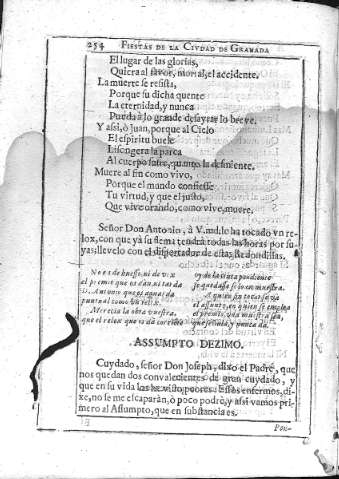 254 FIESTAS DE LA CIVDAD DE GRANADA
El lugar de las glorias,
Quiera al favor, mortal, el accidente.
La muerte se resista,
Porque su dicha quente
La eternidad, y nunca
Pueda à lo grande desayrar lo breve.
Y assi, ò Juan, porque al Cielo
El espiritu buele
Lisongera la parca
Al cuerpo sufre, quanto la desmiente.
Muere al fin como vivo,
Porque el mundo confiesse
Tu virtud, y que el justo,
Que vive orando, como vive, muere.
Señor Don Antonio, à V.md. le ha tocado vn re-
lox, con que yà su flema tendrà todas las horas por su-
yas; llevelo con el dispertador de estas Redondillas.
No es de huesso, ni de
al premio que os dan, ni tarda
D. Antonio que
puntual como
Merecia la obra vuestra,
que el relox que os da
oy de la
se quedasse solo en muestra.
A quien
el assumpto, en quien se emplea
el premio, vna muestra sea,
que señala, y nunca da.
ASSUMPTO DEZIMO.
Cuydado, señor Don Joseph, dixo el Padre, que
nos quedan dos convalecientes de gran cuydado, y
que en su vida los he visto peores. Essos enfermos, di-
xe, no se me escaparàn, ò poco podrè, y assi vamos pri-
mero al Assumpto, que en substancia es.
Pon-